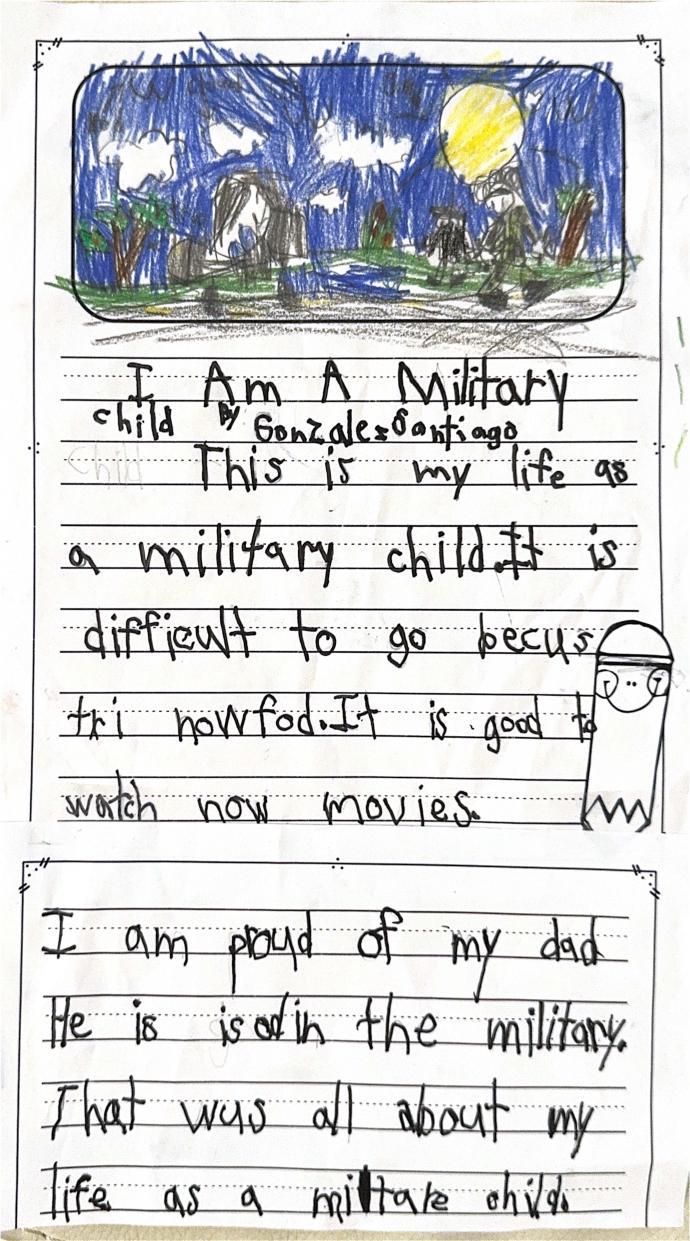 I Am A Military
child By Gonzalez Santiago
child This is my life as
a military child.It is
difficult to go becus
tri nowfod.It is good to
watch now movies.
I am proud of my dad
He is is in the military.
That was all about my
life as a miltare child.